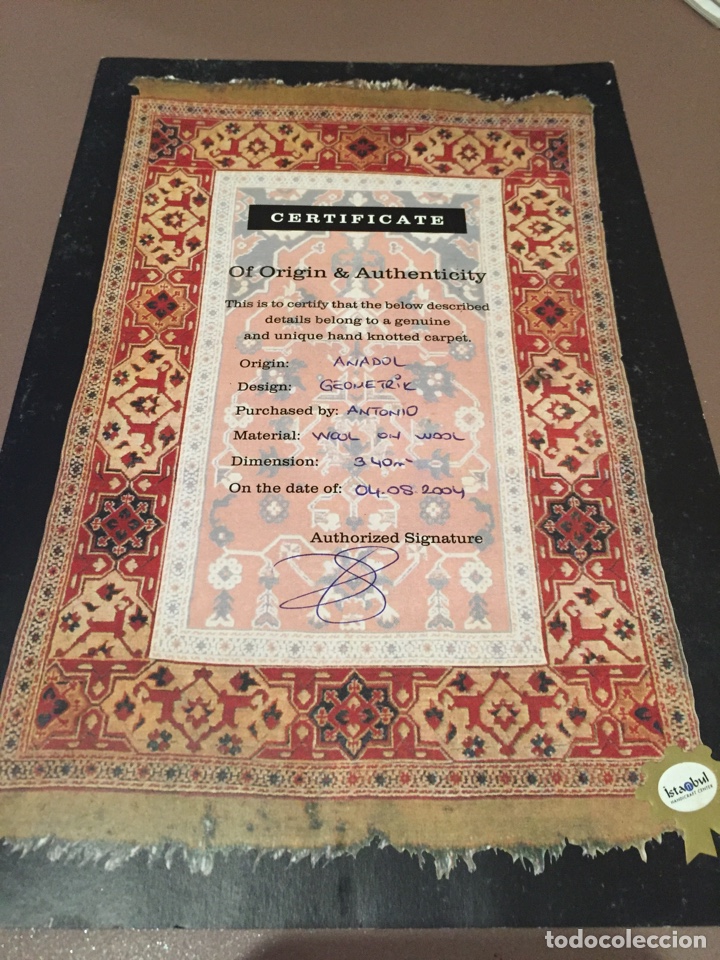 CERTIFICATE
Of Origin & Authenticity
This is to certify that the below described
details belong to a genuine
and unique hand knotted carpet.
Origin: ANADOL
Design: GEOMETRİK
Purchased by: ANTONIO
Material: WOOL ON WOOL
Dimension: 340m²
On the date of: 04.08.2004
Authorized Signature
İstanbul
HANDICRAFT CENTER
todocoleccion